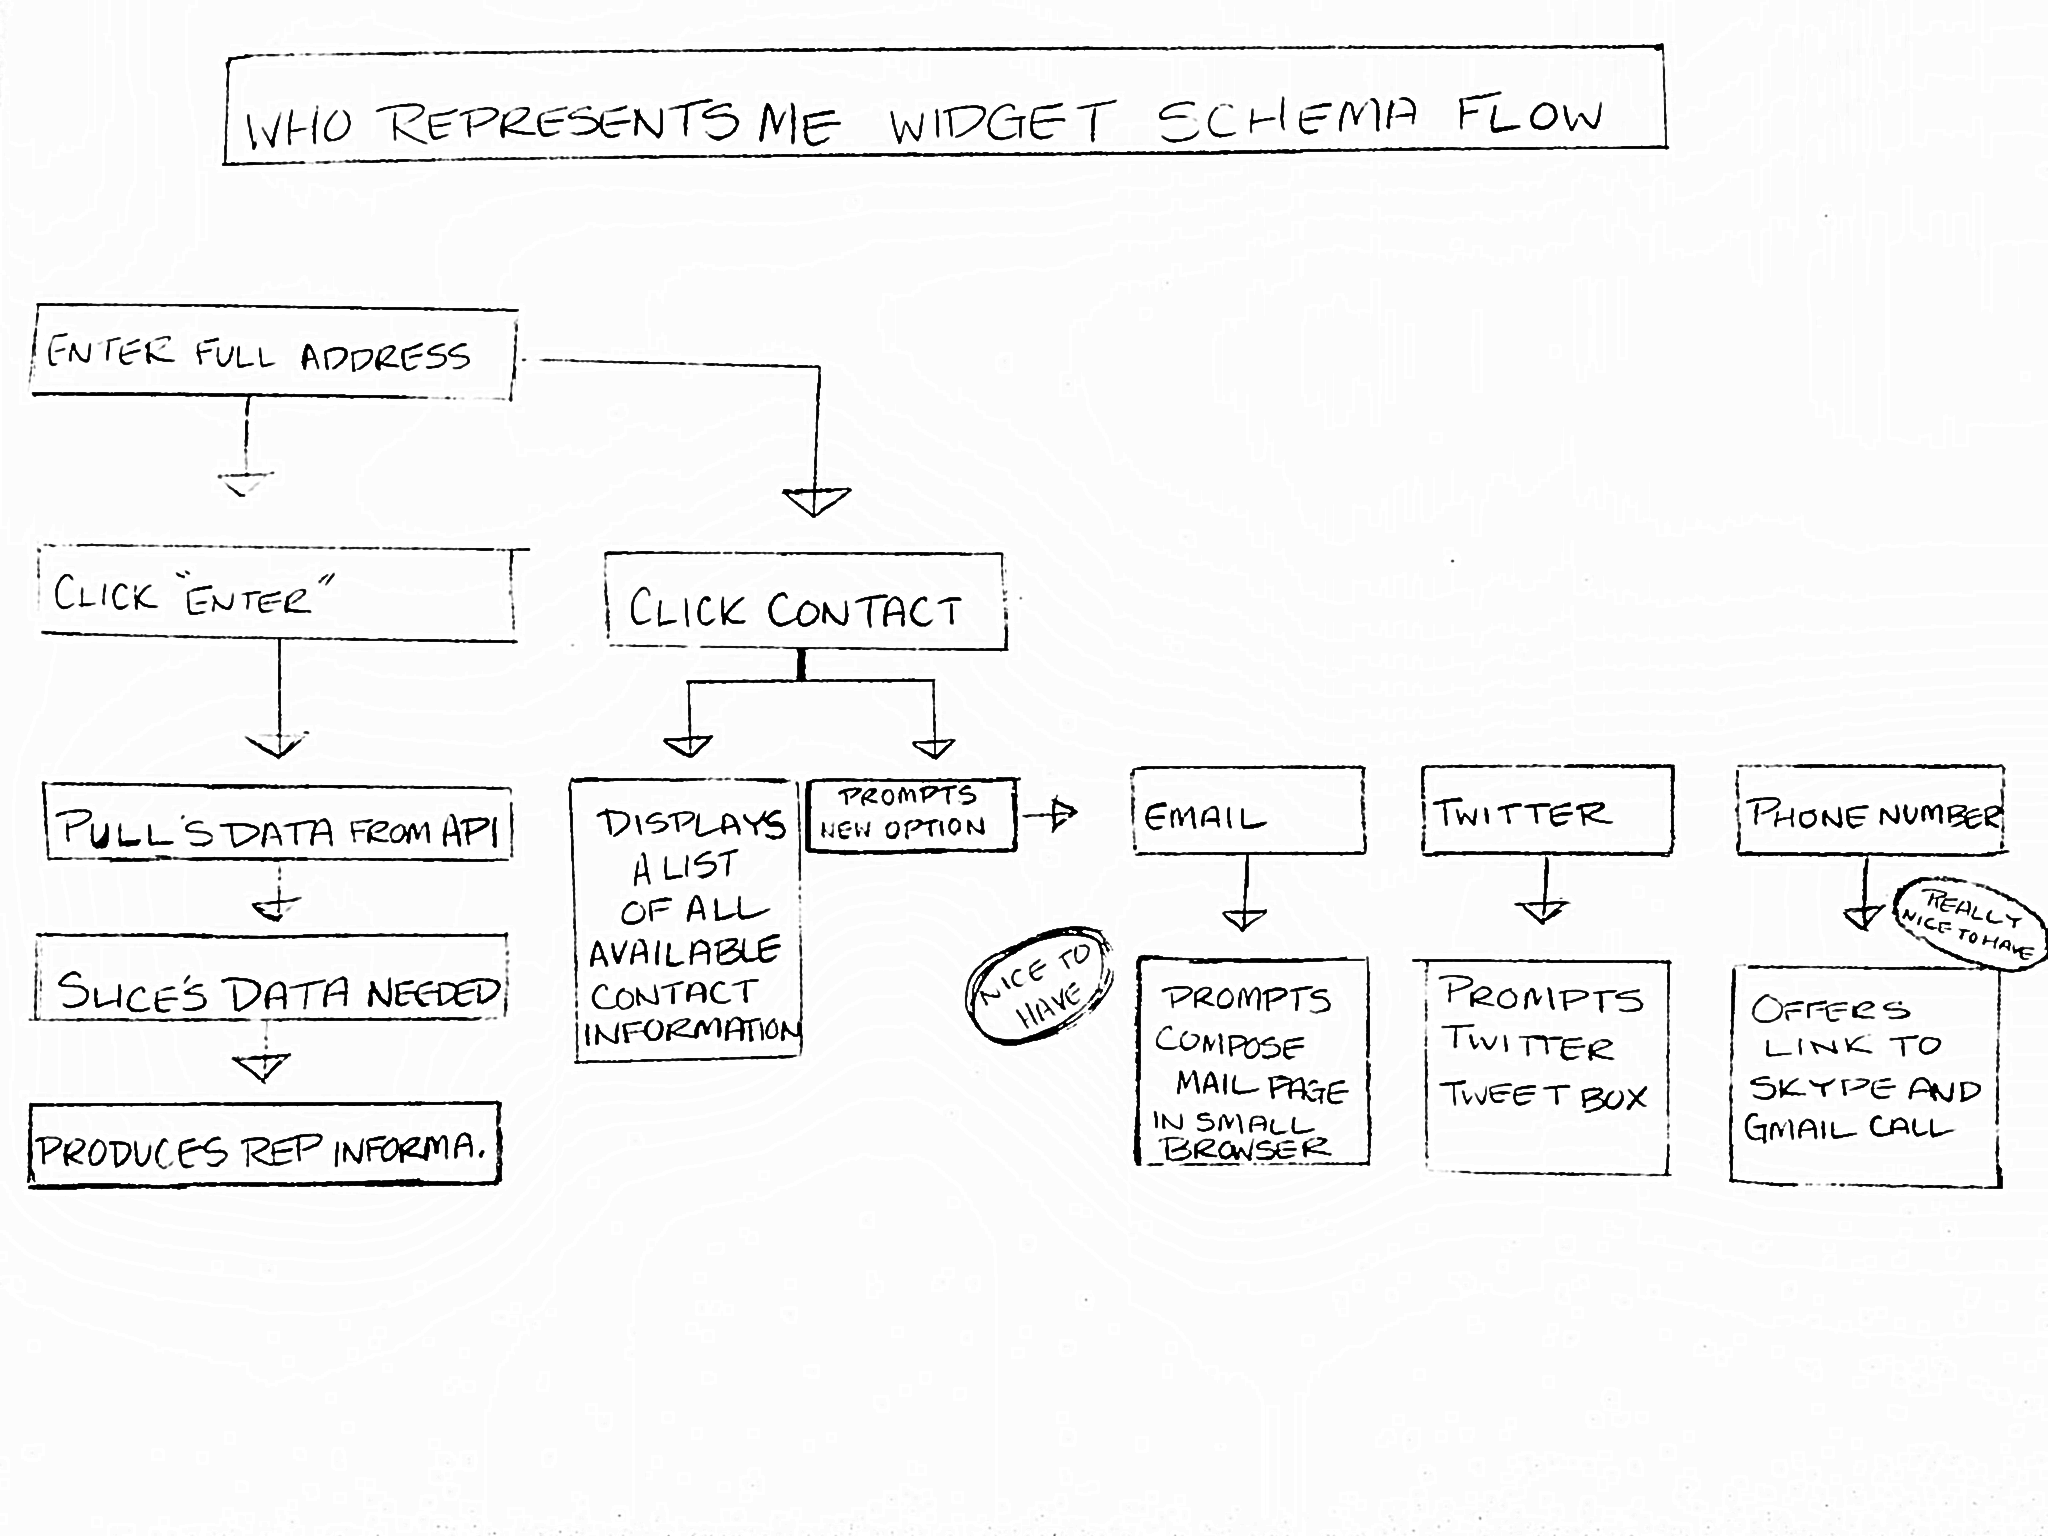 WHO REPRESENTS ME WIDGET SCHEMA FLOW
ENTER FULL ADDRESS
CLICK "ENTER"
PULL'S DATA FROM API
SLICE'S DATA NEEDED
PRODUCES REP INFORMA.
CLICK CONTACT
DISPLAYS
A LIST
OF ALL
AVAILABLE
CONTACT
INFORMATION
PROMPTS
NEW OPTION
NICE TO
HAVE
EMAIL
PROMPTS
COMPOSE
MAIL PAGE
IN SMALL
BROWSER
TWITTER
PROMPTS
TWITTER
TWEET BOX
PHONE NUMBER
REALLY
NICE TO HAVE
OFFERS
LINK TO
SKYPE AND
GMAIL CALL